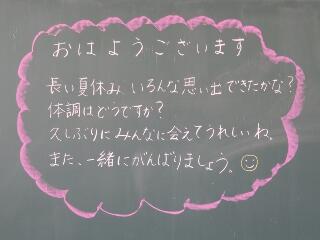 おはようございます
長い夏休み いろんな思い出できたかな?
体調はどうですか?
久しぶりにみんなに会えてうれしいね。
また、一緒にがんばりましょう。